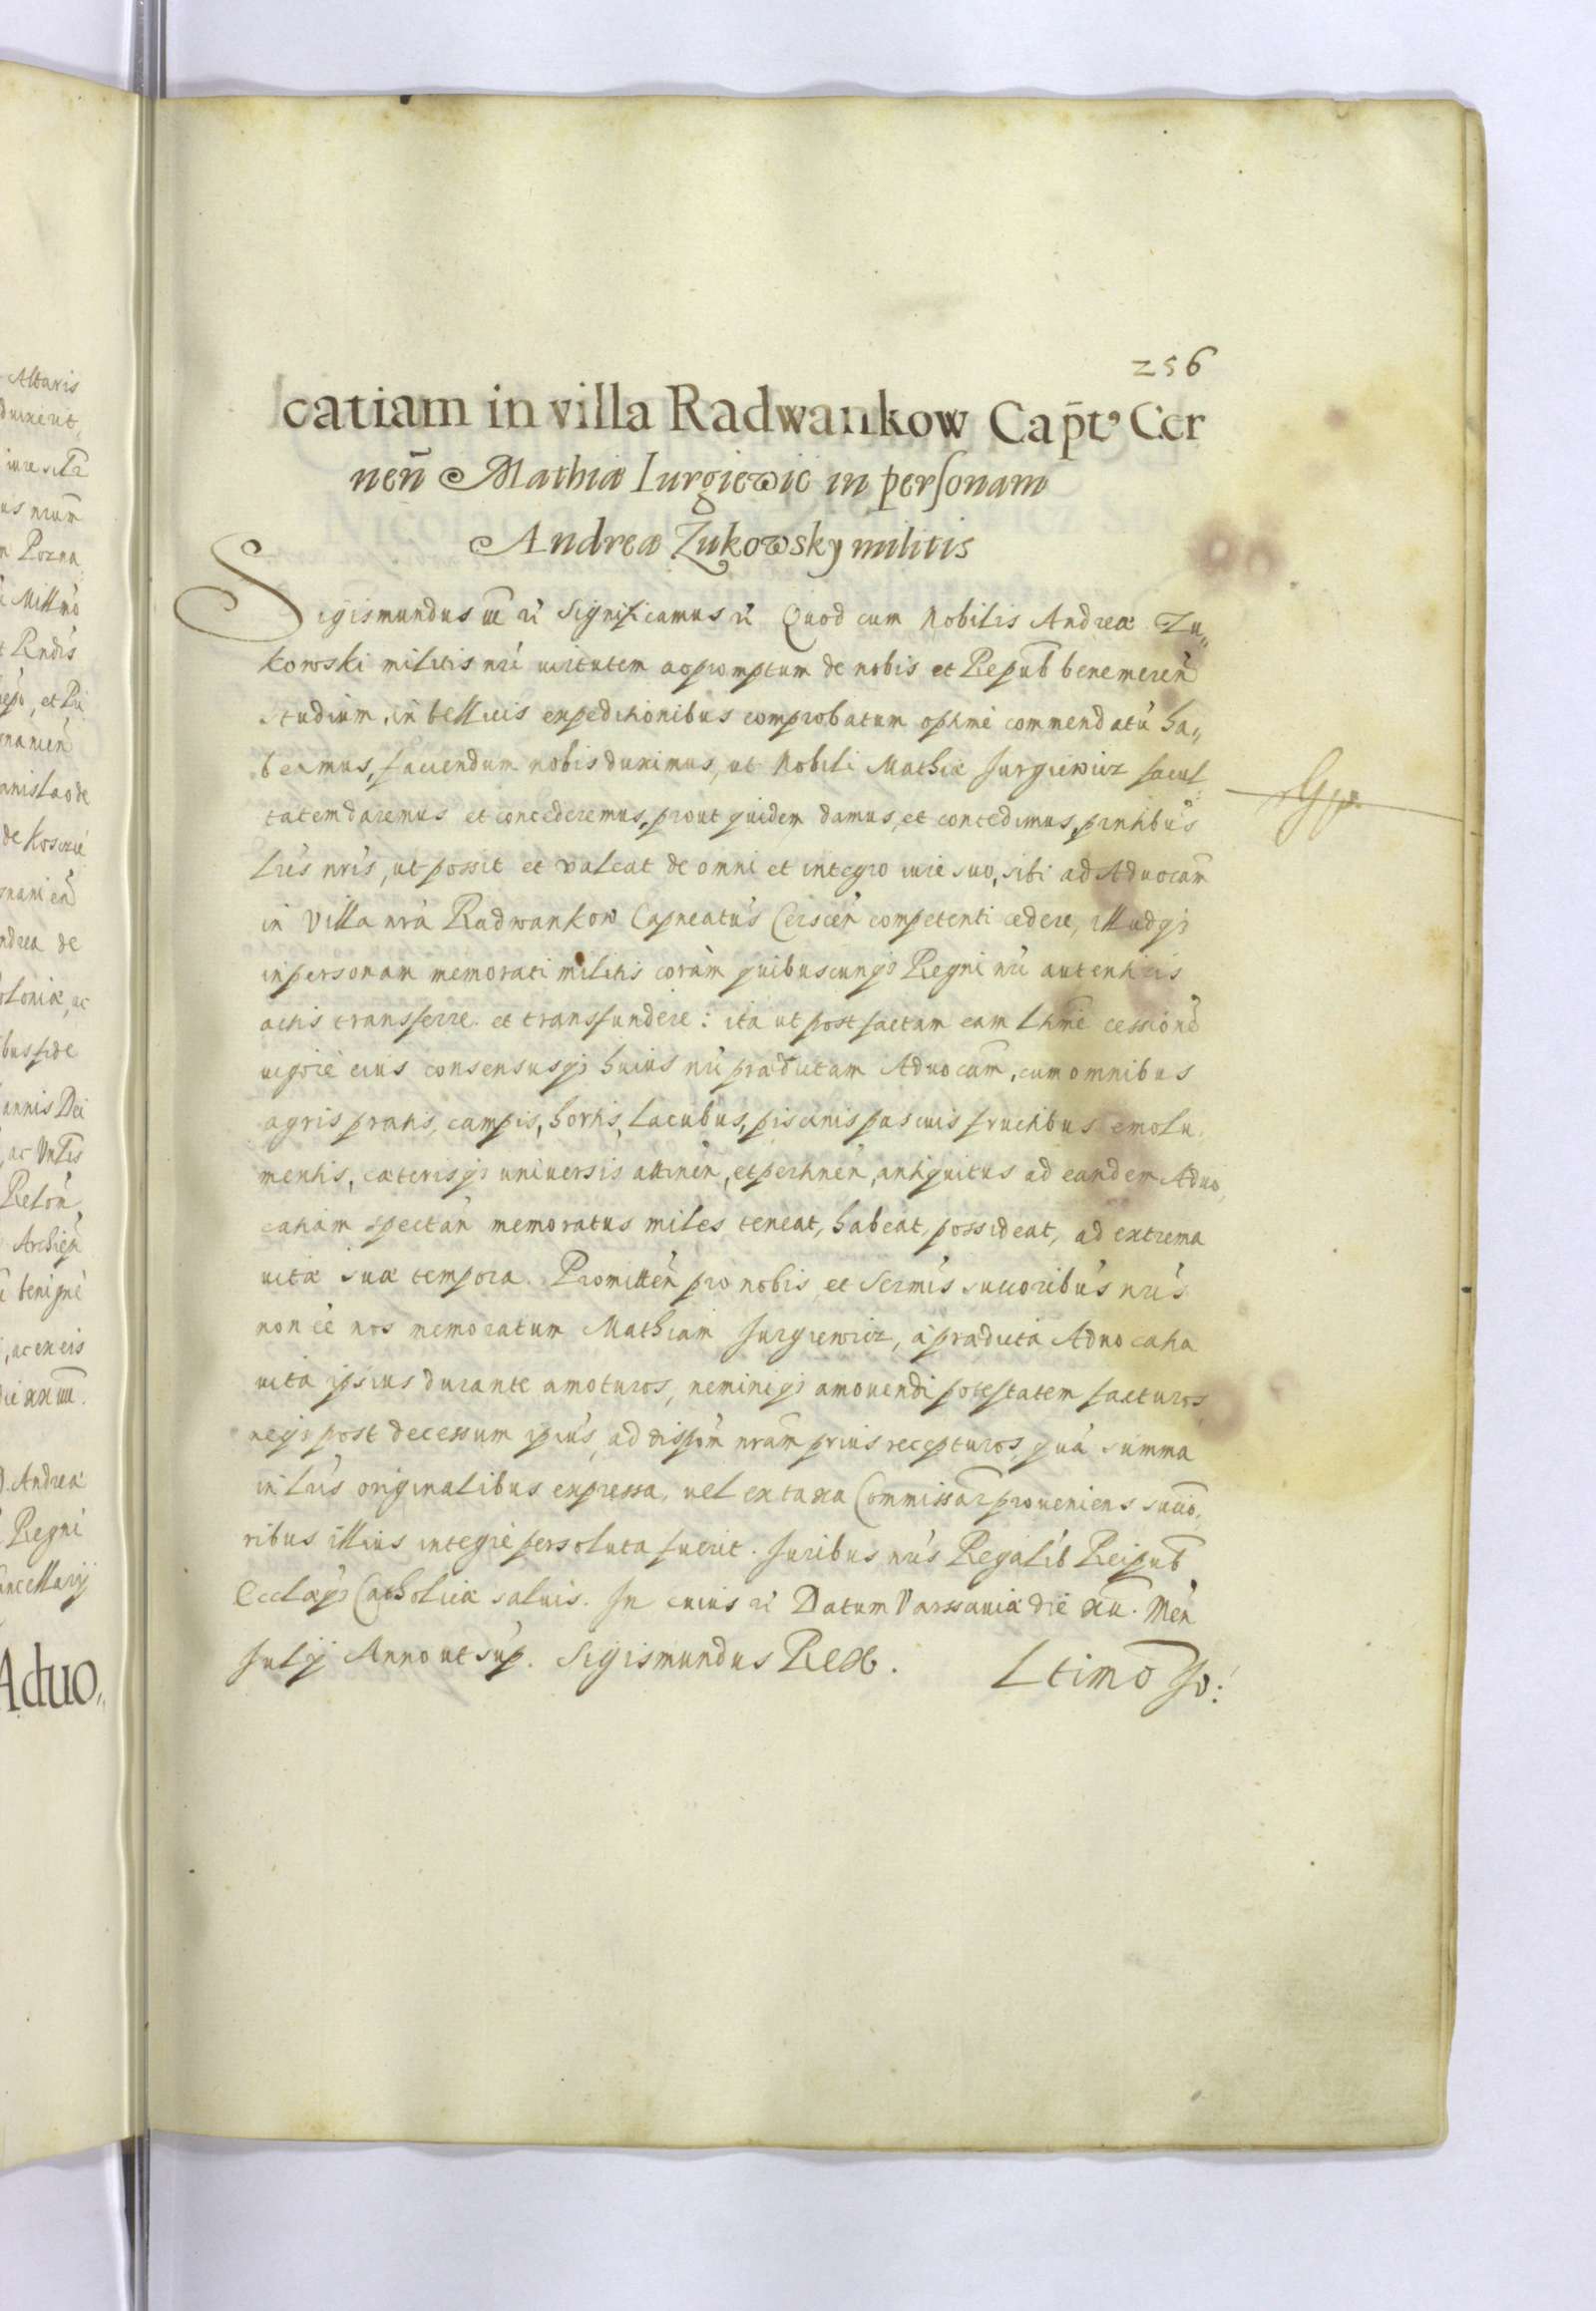 256
catiam in villa Radwankow Cap̃tꝰ Cer
neñ Mathiæ Iurgiewic in personam
Andreæ Zukowsky militis
Sigismundus III rc̃ Significamus rc̃ Quod cum Nobilis Andreæ Zu„
kowski militis nrĩ uirtutem ac promptum de nobis et Repub̃ benemereñ
studium, in bellicis expeditionibus comprobatum optimè commendatũ ha„
beamus, faciendum nobis duximus, ut Nobili Mathiæ Jurgiewicz facul„
tatem daremus et concederemus, prout quidem damus, et concedimus, pñtibus
Lris nris, ut possit et valeat de omni et integro iure suo, sibi ad Aduocãm
in Villa nrã Radwankow Capneatus Cerscen̄ competenti cedere, illudq₃
in personam memorati militis coràm quibuscunq₃ Regni nrĩ autenticis
actis transferre et transfundere: ita ut post factam eam Lttmè cessionẽ
uigorè eius consensusq₃ huius nrĩ prædictam Aduocãm, cum omnibus
agris pratis, campis, hortis, Lacubus, piscinis pascuis fructibus emolu„
mentis, cæterisq₃ universis attineñ, et pertineñ, antiquitus ad eandem Aduo„
catiam spectañ memoratus miles teneat, habeat, possideat, ad extrema
uitæ suæ tempora. Promitteñ pro nobis et Serm̃is succoribũs nrĩs
non eẽ nos memoratum Mathiam Jurgiewicz, à prædicta Aduocatia
uita ipsius durante amoturos, neminiq₃ amouendi potestatem facturos
neq₃ post decessum ipsius, ad dispoñm nrãm prius recepturos, quà summa
in Lris originalibus expressa, uel ex taxa Commissar̃ proueniens succo„
ribus illius integrè persoluta fuerit. Juribus nrĩs Regalib̃ Reipub̃
Ecclæq₃ Catholicæ saluis. In cuius rc̃ Datum Varssauiæ die XII. Meñ
Julij Anno ut sup̃. Sigismundus Rex. Ltimõ Jo:
Altaris
duxerit,
us nrum̃
Pozna
Regni
Aduo„